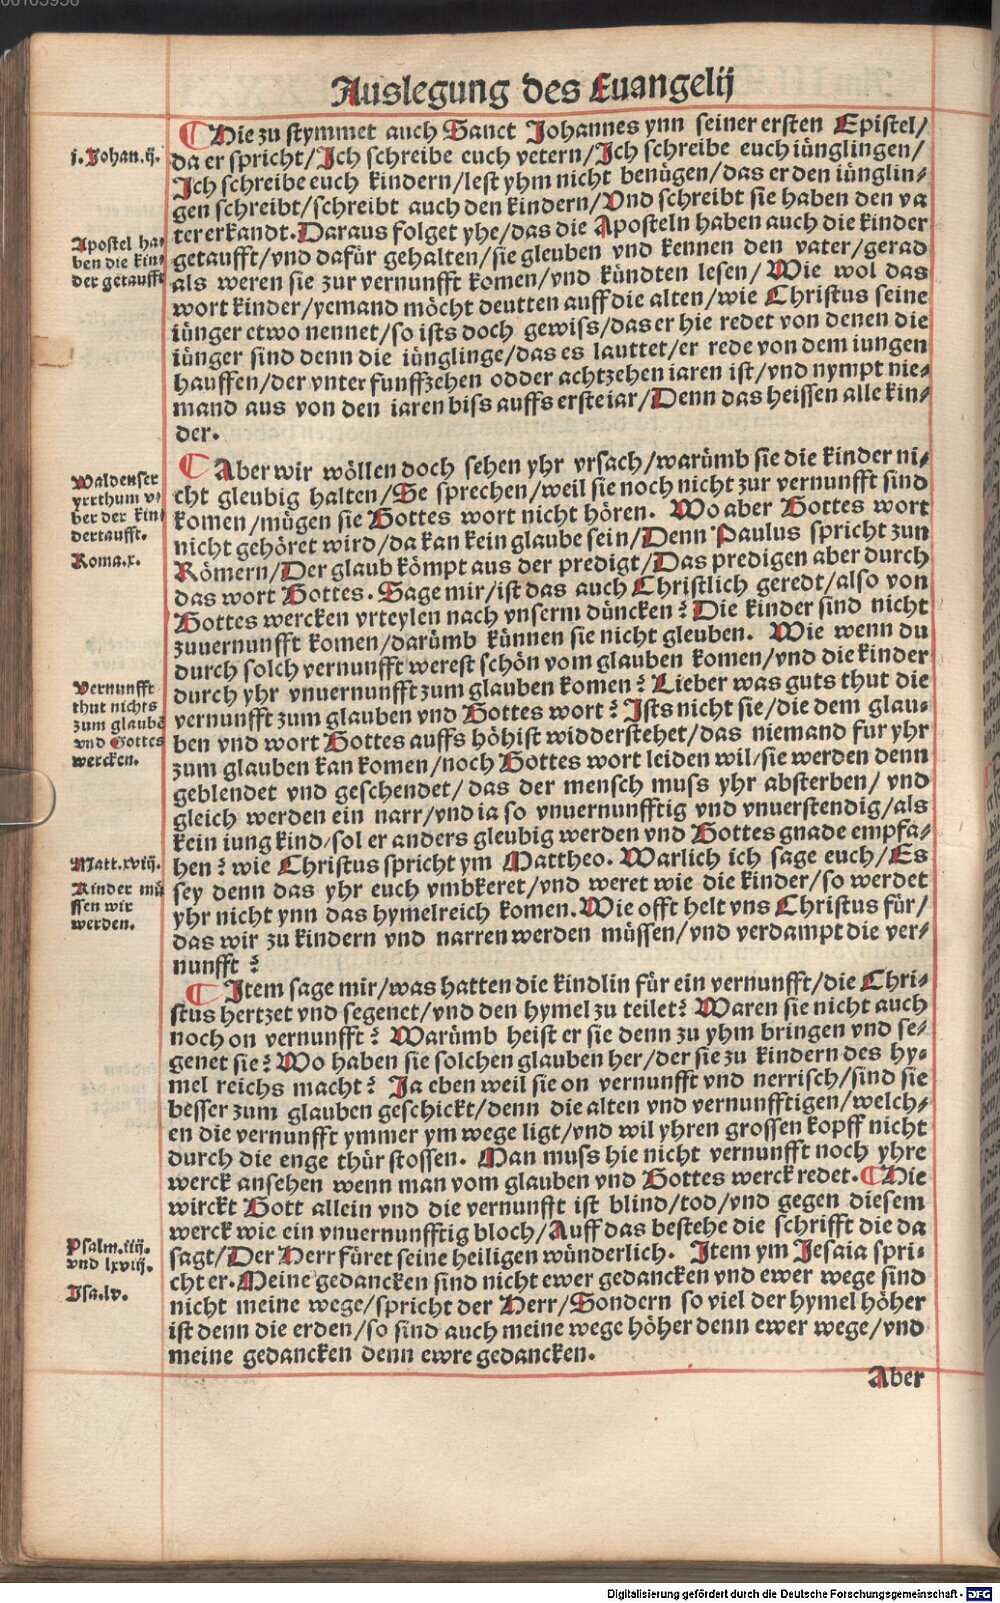 Auslegung des Euangelij
Hie zu stymmet auch Sanct Johannes ynn seiner ersten Epistel/
j. Johan. ij.
da er spricht/Ich schreibe euch vetern/Ich schreibe euch iünglingen/
Ich schreibe euch kindern/lest yhm nicht benügen/das er den iünglin-
gen schreibt/schreibt auch den kindern/Vnd schreibt sie haben den va
ter erkandt. Daraus folget yhe/das die Aposteln haben auch die kinder
getaufft/vnd dafür gehalten/sie gleuben vnd kennen den vater/gerad
als weren sie zur vernunfft komen/vnd kündten lesen/Wie wol das
Apostel ha-
ben die kin-
der getaufft
wort kinder/yemand möcht deutten auff die alten/wie Christus seine
iünger etwo nennet/so ists doch gewiss/das er hie redet von denen die
iünger sind denn die iünglinge/das es lauttet/er rede von dem iungen
hauffen/der vnter funffzehen odder achtzehen iaren ist/vnd nympt nie-
mand aus von den iaren biss auffs erste iar/Denn das heissen alle kin-
der.
Aber wir wöllen doch sehen yhr vrsach/warümb sie die kinder ni-
cht gleubig halten/Se sprechen/weil sie noch nicht zur vernunfft sind
komen/mügen sie Gottes wort nicht hören. Wo aber Gottes wort
nicht gehöret wird/da kan kein glaube sein/Denn Paulus spricht zun
Waldenser
yrrthum v-
ber der kin-
dertaufft.
Roma. x.
Römern/Der glaub kömpt aus der predigt/Das predigen aber durch
das wort Gottes. Sage mir/ist das auch Christlich geredt/also von
Gottes wercken vrteylen nach vnserm düncken? Die kinder sind nicht
zuuernunfft komen/darümb künnen sie nicht gleuben. Wie wenn du
durch solch vernunfft werest schön vom glauben komen/vnd die kinder
durch yhr vnuernunfft zum glauben komen? Lieber was guts thut die
vernunfft zum glauben vnd Gottes wort? Ists nicht sie/die dem glau-
ben vnd wort Gottes auffs höhist widderstehet/das niemand fur yhr
zum glauben kan komen/noch Gottes wort leiden wil/sie werden denn
Vernunfft
thut nichts
zum glaubē
vnd Gottes
wercken.
geblendet vnd geschendet/das der mensch muss yhr absterben/vnd
gleich werden ein narr/vnd ia so vnuernunfftig vnd vnuerstendig/als
kein iung kind/sol er anders gleubig werden vnd Gottes gnade empfa-
hen? wie Christus spricht ym Mattheo. Warlich ich sage euch/Es
sey denn das yhr euch vmbkeret/vnd weret wie die kinder/so werdet
yhr nicht ynn das hymelreich komen. Wie offt helt vns Christus für/
das wir zu kindern vnd narren werden müssen/vnd verdampt die ver-
nunfft?
Matt. xviij.
Kinder mü
ssen wir
werden.
Item sage mir/was hatten die kindlin für ein vernunfft/die Chri-
stus hertzet vnd segenet/vnd den hymel zu teilet? Waren sie nicht auch
noch on vernunfft? Warümb heist er sie denn zu yhm bringen vnd se-
genet sie? Wo haben sie solchen glauben her/der sie zu kindern des hy-
mel reichs macht? Ja eben weil sie on vernunfft vnd nerrisch/sind sie
besser zum glauben geschickt/denn die alten vnd vernunfftigen/welch-
en die vernunfft ymmer ym wege ligt/vnd wil yhren grossen kopff nicht
durch die enge thür stossen. Man muss hie nicht vernunfft noch yhre
werck ansehen wenn man vom glauben vnd Gottes werck redet. Hie
wirckt Gott allein vnd die vernunfft ist blind/tod/vnd gegen diesem
werck wie ein vnuernunfftig bloch/Auff das bestehe die schrifft die da
sagt/Der Herr füret seine heiligen wünderlich. Item ym Jesaia spri-
cht er. Meine gedancken sind nicht ewer gedancken vnd ewer wege sind
nicht meine wege/spricht der Herr/Sondern so viel der hymel höher
ist denn die erden/so sind auch meine wege höher denn ewer wege/vnd
meine gedancken denn ewre gedancken.
Psalm. iiij.
vnd lxviij.
Isa. lv.
Aber
Digitalisierung gefördert durch die Deutsche Forschungsgemeinschaft - DFG